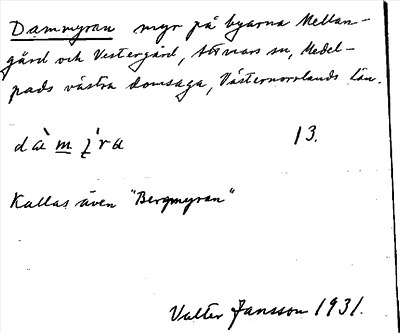 Dammyran myr på byarna Mellan-
gård och Vestergård, Attmars sn, Medel-
pads västra domsaga, Västernorrlands län.
13.
Kallas även "Bergmyran"
Valter Jansson 1931.